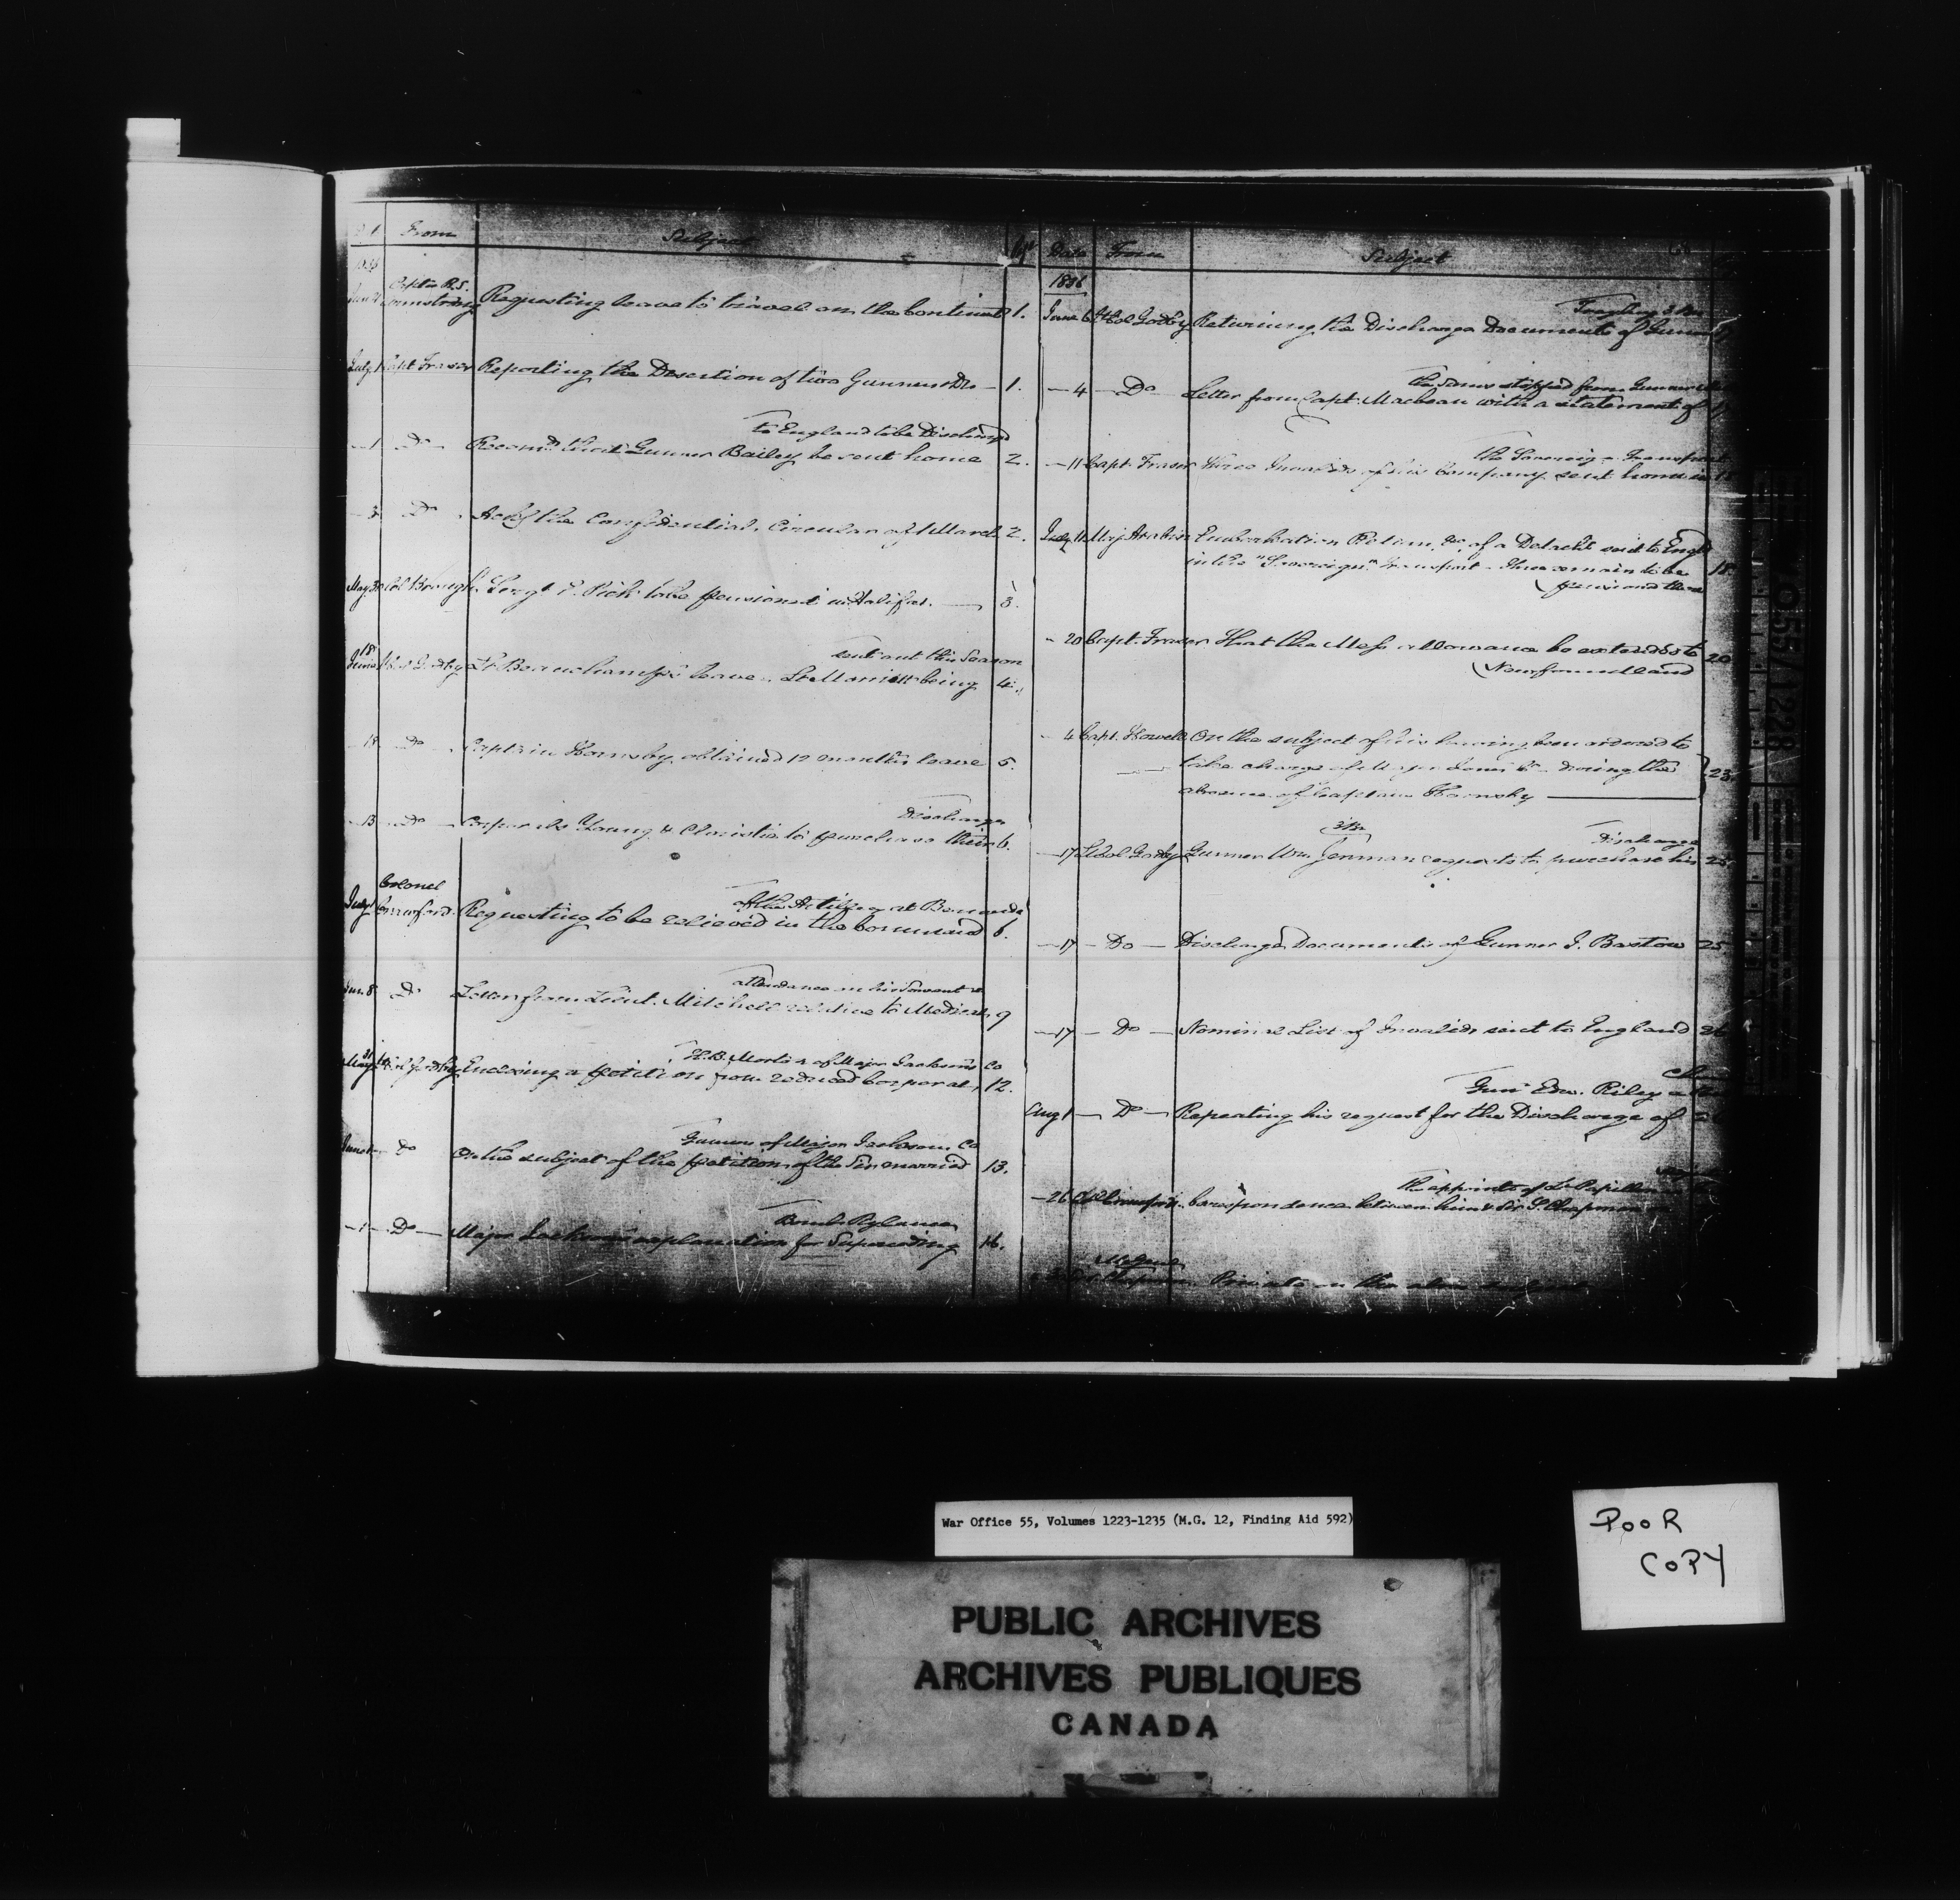 From Subject
Captn R.S.
Armstrong Requesting leave to travel on the Continent 1.
July 1 Capt Fraser Reporting the Desertion of two Gunners &c — 1.
to England to be Discharged
— 1 Do Recomds that Gunner Bailey be sent home 2.
— 3 Do Ackg the Confidential Circular of 1 March 2.
May 30 Col Brough Sergt P. Pick to be pensioned in Halifax. — 3.
sent out this Season
June 18 Col Godby Lt Beauchamp's leave, Lt Morris being 4.
— 18 Do Captain Hornsby obtained 12 months leave 5.
Discharge
— 13 Do Corporals Young & Christie to purchase their 6.
Colonel of the Artillery at Bermuda
July 1 Crawford Requesting to be relieved in the Command 6.
attendance on his Servant
Jun. 8 Do Letter from Lieut. Mitchell relative to Medical 9
H.B. Morton of Major Jackson's Co
May 31 Col Godby Enclosing a petition from reduced Corporal, 12.
Gunners of Major Jackson's Co
June 1 Do On the subject of the petition of the Six married 13.
Bomb. Rylance
— 1 — Do — Major Jackson's explanation for Superceding 16.
Date From Subject
1836
June 6 Lt Col Godby Returning the Discharge Documents of Gunner
the sums stopped from Gunner
— 4 — Do — Letter from Capt. Macbean with a statement of
the Sovereign Transport
— 11 Capt. Fraser Three Invalids of his Company sent home in
July 11 Maj Arabin Embarkation Return &c, of a Detacht. sent to Engd
in the "Sovereign" Transport — three remain to be 18
pensioned there
— 20 Capt. Fraser That the Mess allowance be extended to 20
Newfoundland
— 4 Capt. Howell On the subject of his having been ordered to
take charge of Major Jones' Co — during the 23
absence of Captain Hornsby —
3 Bn Discharge
— 17 Lt Col Godby Gunner Wm. Jenman requests to purchase his 25
— 17 — Do — Discharge Documents of Gunner J. Bastow 25
— 17 — Do — Nominal List of Invalids sent to England 26
Gunr Edw. Riley
Aug 1 — Do — Repeating his request for the Discharge of
the appointt of Lt Papillon
— 26 Col Crawford Correspondence between him & Sir S. Chapman
Chapman Private on the above subject
WO55/1228
War Office 55, Volumes 1223-1235 (M.G. 12, Finding Aid 592)
POOR
COPY
PUBLIC ARCHIVES
ARCHIVES PUBLIQUES
CANADA